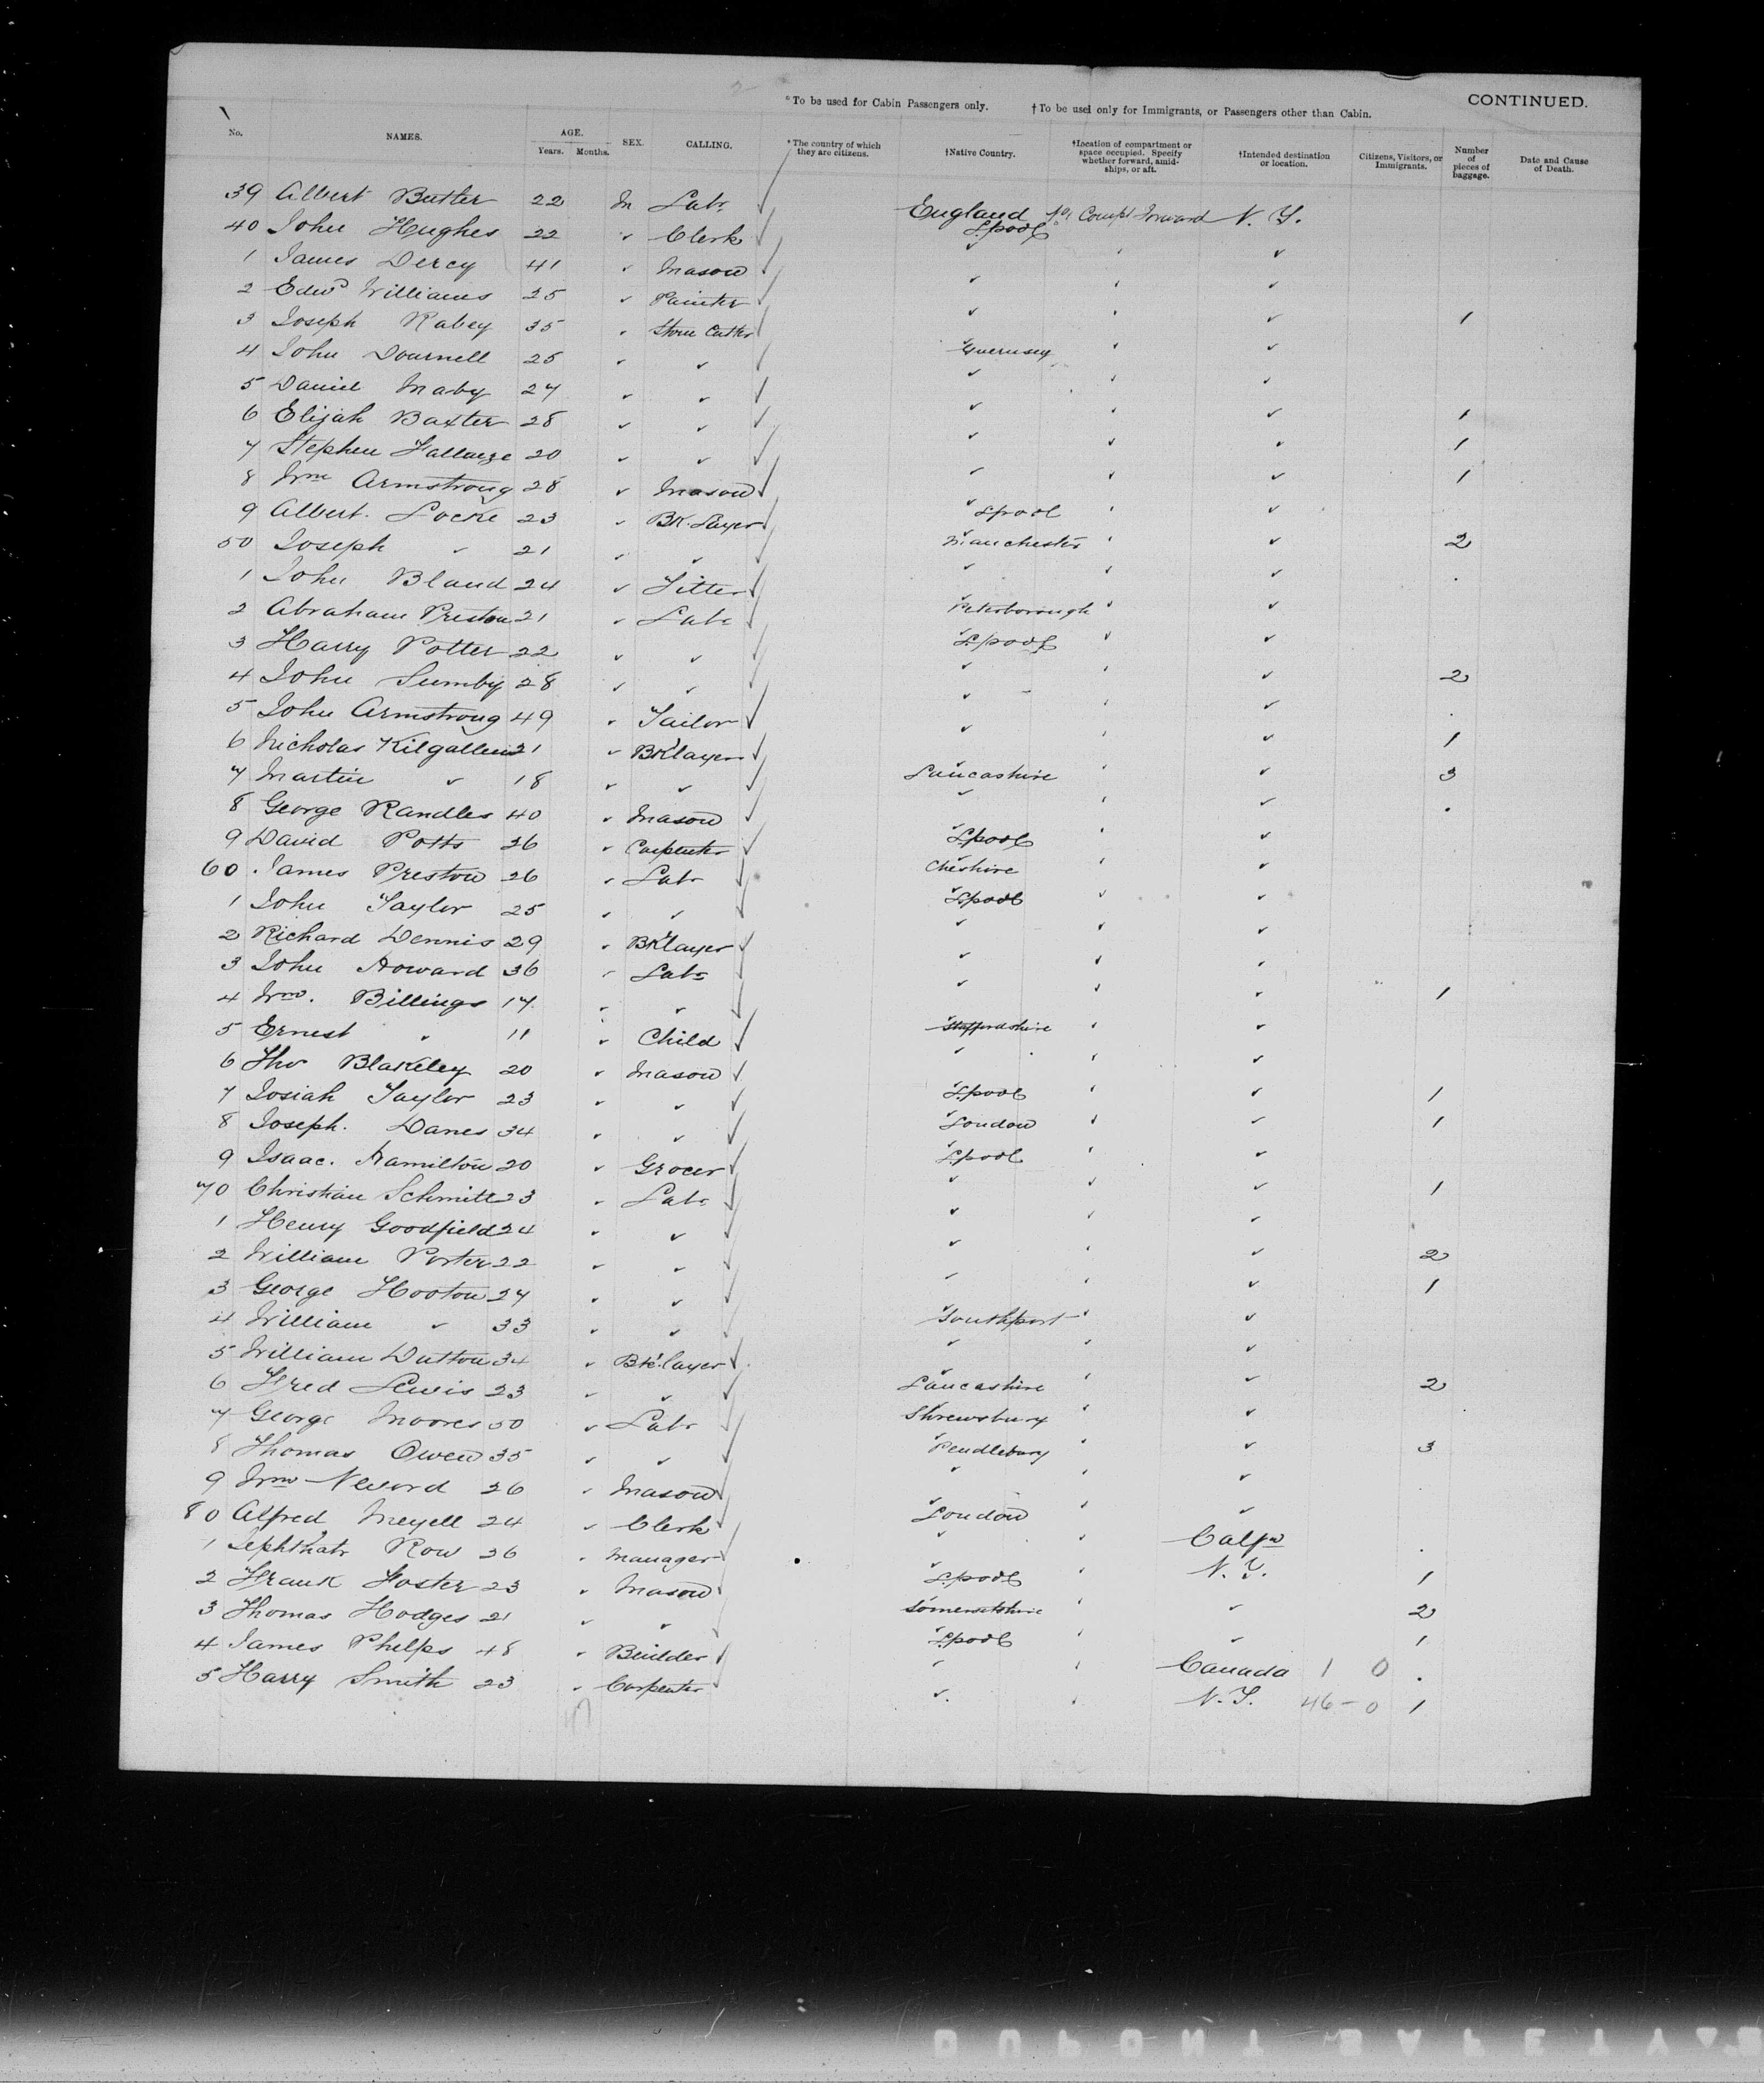 CONTINUED.
*To be used for Cabin Passengers only. †To be used only for Immigrants, or Passengers other than Cabin.
No. NAMES. AGE. Years. Months. SEX. CALLING. *The country of which they are citizens. †Native Country. †Location of compartment or space occupied. Specify whether forward, amidships, or aft. †Intended destination or location. Citizens, Visitors, or Immigrants. Number of pieces of baggage. Date and Cause of Death.
39 Albert Butler 22 M Labr England L'pool Compt Forward N. Y.
40 John Hughes 22 " Clerk " " "
1 James Dercy 41 " Mason " " "
2 Edwd Williams 25 " Painter " " " 1
3 Joseph Rabey 35 " Stone Cutter Guernsey " "
4 John Dournell 25 " " " " "
5 Daniel Maby 27 " " " " " 1
6 Elijah Baxter 28 " " " " " 1
7 Stephen Fallaeze 20 " " " " " 1
8 Wm Armstrong 28 " Mason L'pool " "
9 Albert Locke 23 " Bk. Layer Manchester " " 2
50 Joseph " 21 " " " " "
1 John Bland 24 " Fitter Peterborough " "
2 Abraham Preston 21 " Labr L'pool " "
3 Harry Potter 22 " " " " " 2
4 John Sumby 28 " " " " "
5 John Armstrong 49 " Tailor " " " 1
6 Nicholas Kilgallen 21 " Bklayer Lancashire " " 3
7 Martin " 18 " " " " "
8 George Randles 40 " Mason L'pool " "
9 David Potts 26 " Carpenter Cheshire " "
60 James Preston 26 " Labr L'pool " "
1 John Taylor 25 " " " " "
2 Richard Dennis 29 " Bklayer " " "
3 John Howard 36 " Labr " " " 1
4 Wm. Billings 17 " " Staffordshire " "
5 Ernest " 11 " Child " " "
6 Tho Blakeley 20 " Mason L'pool " " 1
7 Josiah Taylor 23 " " London " " 1
8 Joseph. Danes 34 " " L'pool " "
9 Isaac. Hamilton 20 " Grocer " " " 1
70 Christian Schmitt 23 " Labr " " "
1 Henry Goodfield 24 " " " " " 2
2 William Porter 22 " " " " " 1
3 George Hooton 27 " " Southport " "
4 William " 33 " " " " "
5 William Dutton 34 " Bk. layer Lancashire " " 2
6 Fred Lewis 23 " " Shrewsbury " "
7 George Moores 50 " Labr Pendlebury " " 3
8 Thomas Owen 35 " " " " "
9 Wm Neword 26 " Mason London " "
80 Alfred Meyell 24 " Clerk " " Calfa
1 Jephthah Row 36 " Manager L'pool " N. Y. 1
2 Frank Foster 23 " Mason Somersetshire " " 2
3 Thomas Hodges 21 " " L'pool " " 1
4 James Phelps 48 " Builder " " Canada 1 0
5 Harry Smith 23 " Carpenter " " N. Y. 46 - 0 1
47
DUPONT SAFETY